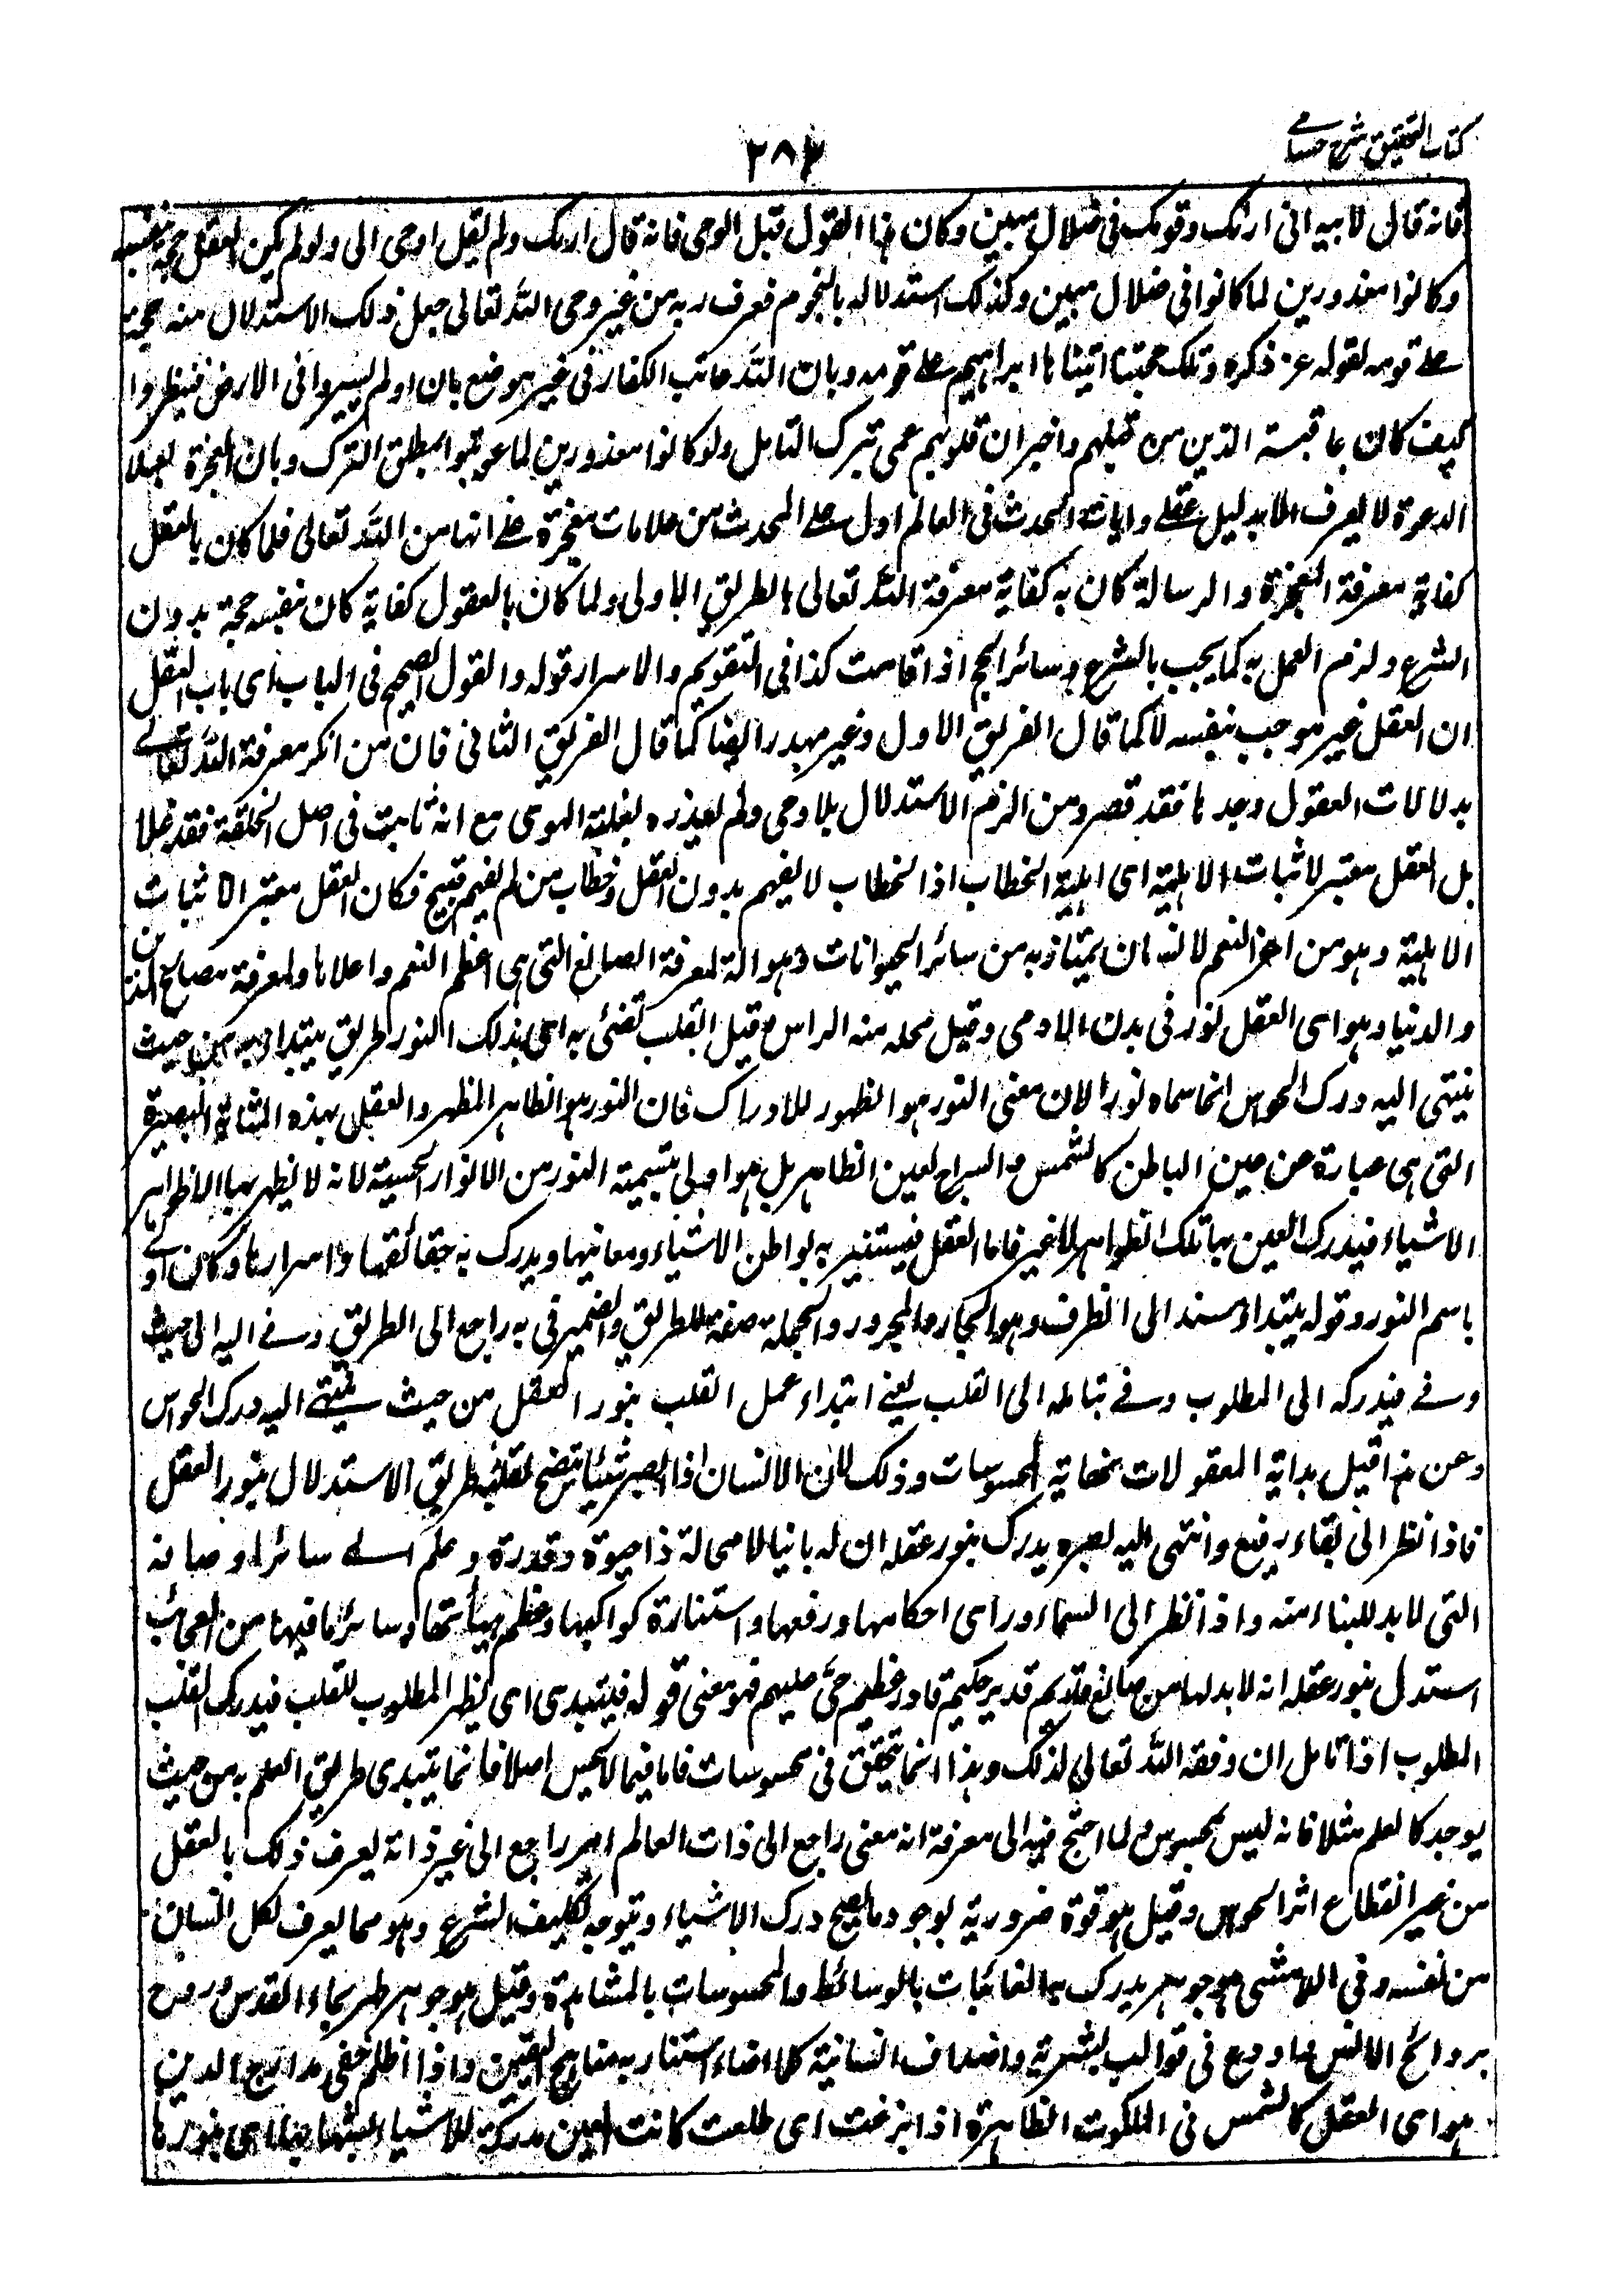 كتاب التحقيق شرح حسامى
٢٨٢
فانه قال لابيه انى ارىك وقومك فى ضلال مبين وكان هذا القول قبل الوحى فانه قال ارىك ولم يقل اوحى الى ولو لم يكن العقل حجة بنفسه
وكانوا معذورين لما كانوا فى ضلال مبين وكذلك استدلاله بالنجوم فعرف ربه من غير وحى الله تعالى جعل ذلك الاستدلال منه حجة
على قومه لقوله عز ذكره وتلك حجتنا اتيناها ابراهيم على قومه وبان الله عاتب الكفار فى غير موضع بان اولم يسيروا فى الارض فينظروا
كيف كان عاقبة الذين من قبلهم واخبر ان قلوبهم عمى بترك التامل ولو كانوا معذورين لما عوقبوا بمطلق الترك وبان المعجزة بعد
الدعوة لا يعرف الا بدليل عقلى وايات الحدث فى العالم ادل على المحدث من علامات معجزة على انها من الله تعالى فلما كان بالعقل
كفاية معرفة المعجزة والرسالة كان به كفاية معرفة الله تعالى بالطريق الاولى ولما كان بالعقول كفاية كان بنفسه حجة بدون
الشرع ولزم العمل به كما يجب بالشرع وسائر الحجج اذا قامت كذا فى التقويم والاسرار قوله والقول الصحيح فى الباب اى باب العقل
ان العقل غير موجب بنفسه لا كما قال الفريق الاول وغير مهدر ايضا كما قال الفريق الثانى فان من انكر معرفة الله تعالى
بدلالات العقول وحدها فقد قصر ومن الزم الاستدلال بلا وحى ولم يعذره لغلبة الهوى مع انه ثابت فى اصل الخلقة فقد غلا
بل العقل معتبر لاثبات الاهلية اى اهلية الخطاب اذ الخطاب لا يفهم بدون العقل وخطاب من لم يفهم قبيح فكان العقل معتبرا لاثبات
الاهلية وهو من اعز النعم لانه ان يمتاز به من سائر الحيوانات وهو الة لمعرفة الصانع التى هى اعظم النعم واعلاها ولمعرفة مصالح الدين
والدنيا وهو اى العقل نور فى بدن الادمى وقيل محله منه الراس وقيل القلب تضئ به اى بذلك النور طريق يبتداء به من حيث
ينتهى اليه درك الحواس انما سماه نورا لان معنى النور هو الظهور للادراك فان النور هو الظاهر المظهر والعقل بهذه المثابة للبصيرة
التى هى عبارة عن عين الباطن كالشمس والسراج لعين الظاهر بل هو اولى بتسمية النور من الانوار الحسية لانه لا يظهر بها الا ظواهر
الاشياء فيدرك العين بها تلك الظواهر لا غير فاما العقل فيستنير به بواطن الاشياء ومعانيها ويدرك به حقائقها واسرارها وكان اولى
باسم النور وقوله يبتداء مسند الى الظرف وهو الجار والمجرور والجملة صفة للطريق والضمير فى به راجع الى الطريق وفى اليه الى حيث
وفى فيدركه الى المطلوب وفى بتامله الى القلب يعنى ابتداء عمل القلب بنور العقل من حيث ينتهى اليه درك الحواس
وعن هذا قيل بداية المعقولات نهاية المحسوسات وذلك لان الانسان اذا ابصر شيئا يتضح لقلبه طريق الاستدلال بنور العقل
فاذا نظر الى بناء رفيع وانتهى اليه بصره يدرك بنور عقله ان له بانيا لا محالة ذا حيوة وقدرة وعلم الى سائر اوصافه
التى لا بد للبناء منه واذا نظر الى السماء وراى احكامها ورفعها واستنارة كواكبها وعظم هيأتها وسائر ما فيها من العجائب
استدل بنور عقله انه لا بد لها من صانع قديم قدير حكيم قادر عظيم حى عليم فهو معنى قوله فيبتدى اى يظهر المطلوب للقلب فيدرك القلب
المطلوب اذا تامل ان وفقه الله تعالى لذلك وهذا انما يتحقق فى محسوسات فاما فيما لا يحس اصلا فانما يبتدى طريق العلم به من حيث
يوجد كالعلم مثلا فانه ليس بمحسوس لما احتج فيه الى معرفة انه معنى راجع الى ذات العالم ام راجع الى غير ذاته يعرف ذلك بالعقل
من غير انقطاع اثر الحواس وقيل هو قوة ضرورية بوجودها يصح درك الاشياء ويتوجه تكليف الشرع وهو مما يعرف لكل انسان
من نفسه وفى اللامشى هو جوهر يدرك به الغائبات بالوسائط والمحسوسات بالمشاهدة وقيل هو جوهر طهر بماء القدس وروح
بروائح الانس واودع فى قوالب بشرية واصداف انسانية كلما اضاء استنار به مناهج اليقين واذا اظلم خفى مدارج الدين
هو اى العقل كالشمس فى الملكوت الظاهرة اذا بزغت اى طلعت كانت العين مدركة للاشياء بشعاعها اى بنورها